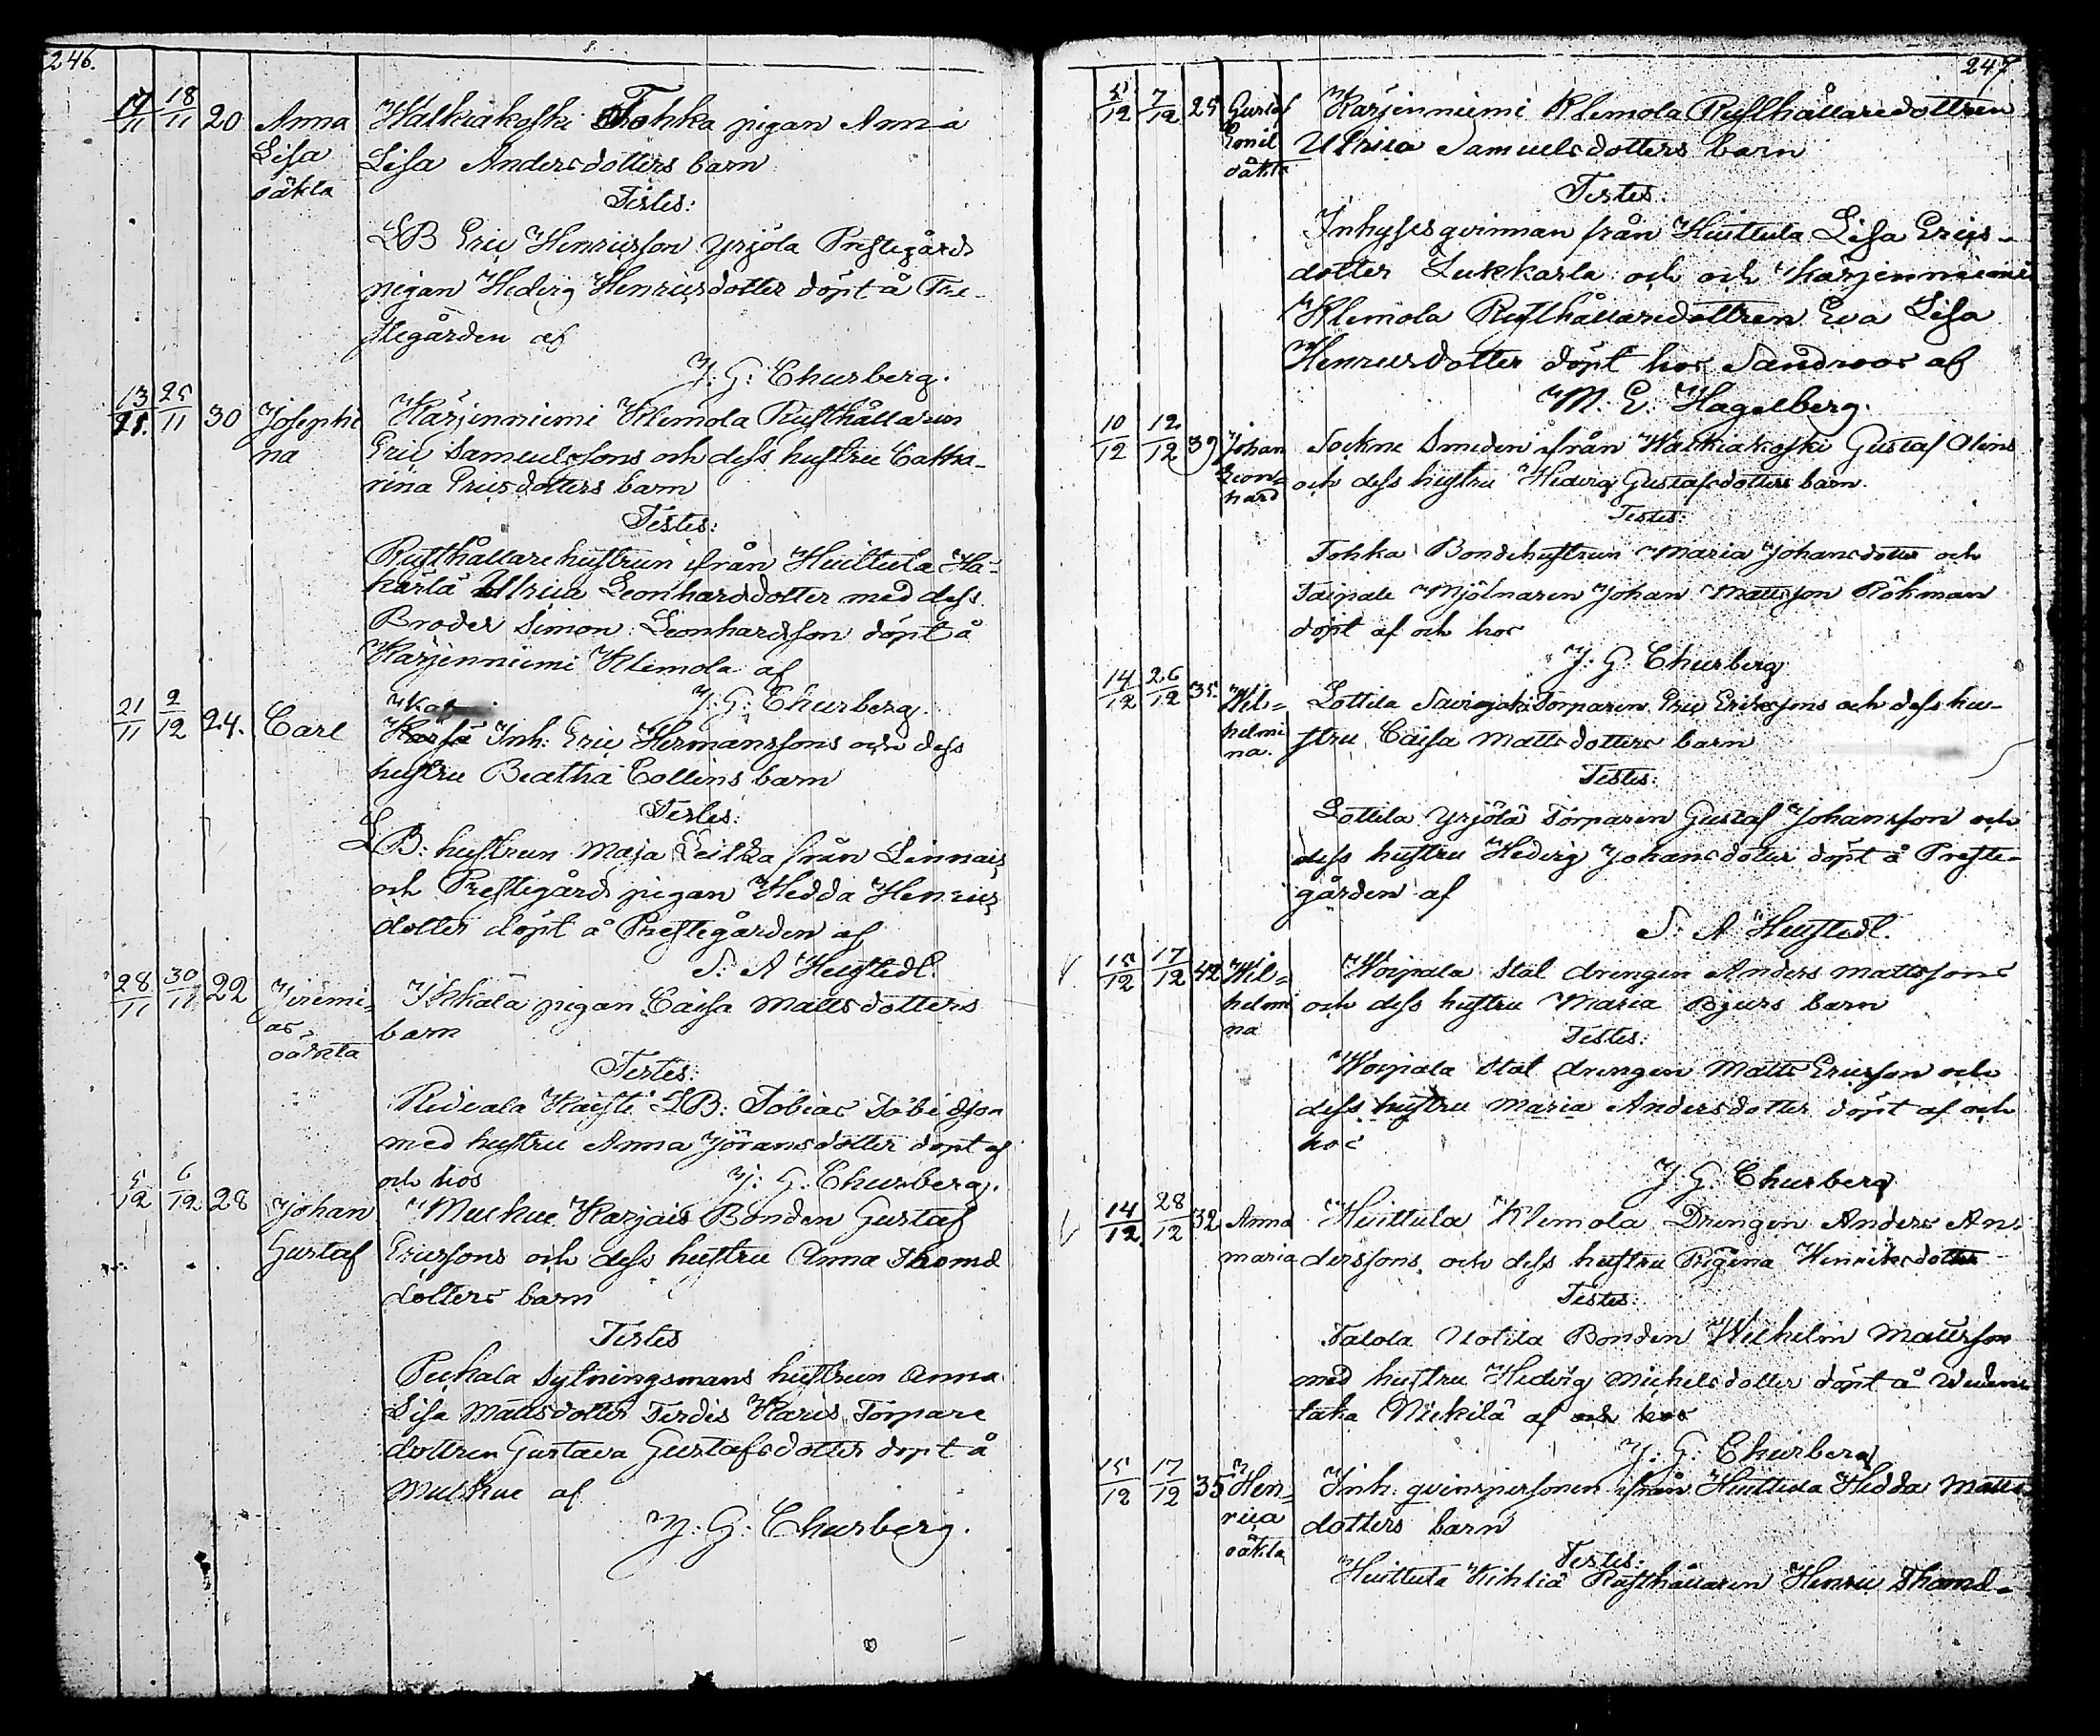 246.
17/11 18/11 20 Anna Walkiakoski Tohka pigan Anna
Lisa Lisa Andersdotters barn
oäkta
Testes:
LB Eric Henricsson Yrjölä Prestegårds
pigan Hedvig Henricsdotter döpt å Pre-
stegården af
J: G: Churberg.
13/11. 25/11 30 Josephi Karjenniemi Klemola Rusthållaren
na Eric Samuelssons och dess hustru Catha-
rina Ericsdotters barn
Testes:
Rusthållarehustrun ifrån Huittula
Ulrica Leonhardsdotter med dess
Broder Simon Leonhardsson döpt å
Karjenniemi Klemola af
J: G: Churberg.
21/11 2/12 24. Carl Inh: Eric Hermanssons och dess
hustru Beatha Collins barn
Testes:
LB: hustrun Maja från Linnais
och Prestegårds pigan Hedda Henrics
dotter döpt å Prestegården af
S: A Heustedl.
28/11 30/11 22 Jeremi- Ikkala pigan Caisa Mattsdotters
as barn
oäkta
Testes:
Ridvala Kaisti LB: Tobias Tobidsson
med hustru Anna Jöransdotter döpt af
och hos J: G: Churberg.
5/12 6/12 28 Johan Muckue Karjais Bonden Gustaf
Gustaf Ericssons och dess hustru Anna Thomæ
dotters barn
Testes
Pukala Sytningsmans hustrun Anna
Lisa Mattsdotter Terdis Haris Torpare
dottren Gustava Gustafsdotter döpt å
Muckue af
J: G: Churberg.
247
5/12 7/12 25 Gustaf Karjenniemi Klemola Rusthållaredottren
Emil Ulrica Samuelsdotters barn
oäkta
Testes:
Inhysesqvinnan från Huittula Lisa Erics-
dotter Lukkarla och och Karjenniemi
Klemola Rusthållaredottren Eva Lisa
Henricsdotter döpt hos Sandroos af
M. E. Hagelberg.
10/12 12/12 39 Johan Sockne Smeden ifrån Walkiakoski Gustaf Olins
Leon- och dess hustru Hedvig Gustafsdotters barn
hard
Testes:
Tohka Bondehustrun Maria Johansdotter och
Taipale Mjölnaren Johan Mattsson Rökman
döpt af och hos
J: G: Churberg
14/12 26/12 35. Wil- Lottila Savojoki Torparen Eric Ericssons och dess hu-
helmi stru Caisa Mattsdotters barn
na.
Testes:
Lottila Yrjölä Torparen Gustaf Johansson och
dess hustru Hedvig Johansdotter döpt å Preste-
gården af
S: A Heustedl.
15/12 17/12 42 Wil- Woipala Stat drengen Anders Mattssons
helmi och dess hustru Maria Bjurs barn
na
Testes:
Woipala Stat drengen Matts Ericsson och
dess hustru Maria Andersdotter döpt af och
hos
J: G: Churberg
14/12. 28/12 32 Anna Huittula Klemola Drengen Anders An-
maria derssons och dess hustru Regina Henriksdotter
Testes:
Talola Uotila Bonden Wilhelm Mattsson
med hustru Hedvig Michelsdotter döpt å
Nickilä af och hos
J: G: Churberg
15/12 17/12 35 Hen- Inh: qvinspersonen ifrån Huittula Hedda Matts
rica dotters barn
oäkta
Testes:
Huittula Kihliä Rusthållaren Henric Thomæ-